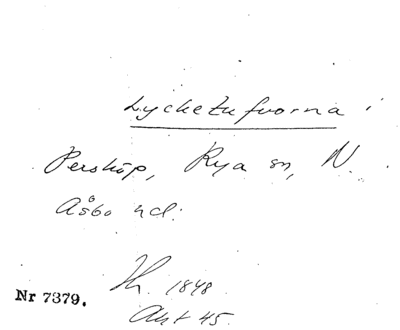 Lycketufvorna i
Perstöp, Rya sn, N.
Åsbo hd.
Th. 1848
Akt 45.
Nr 7379.